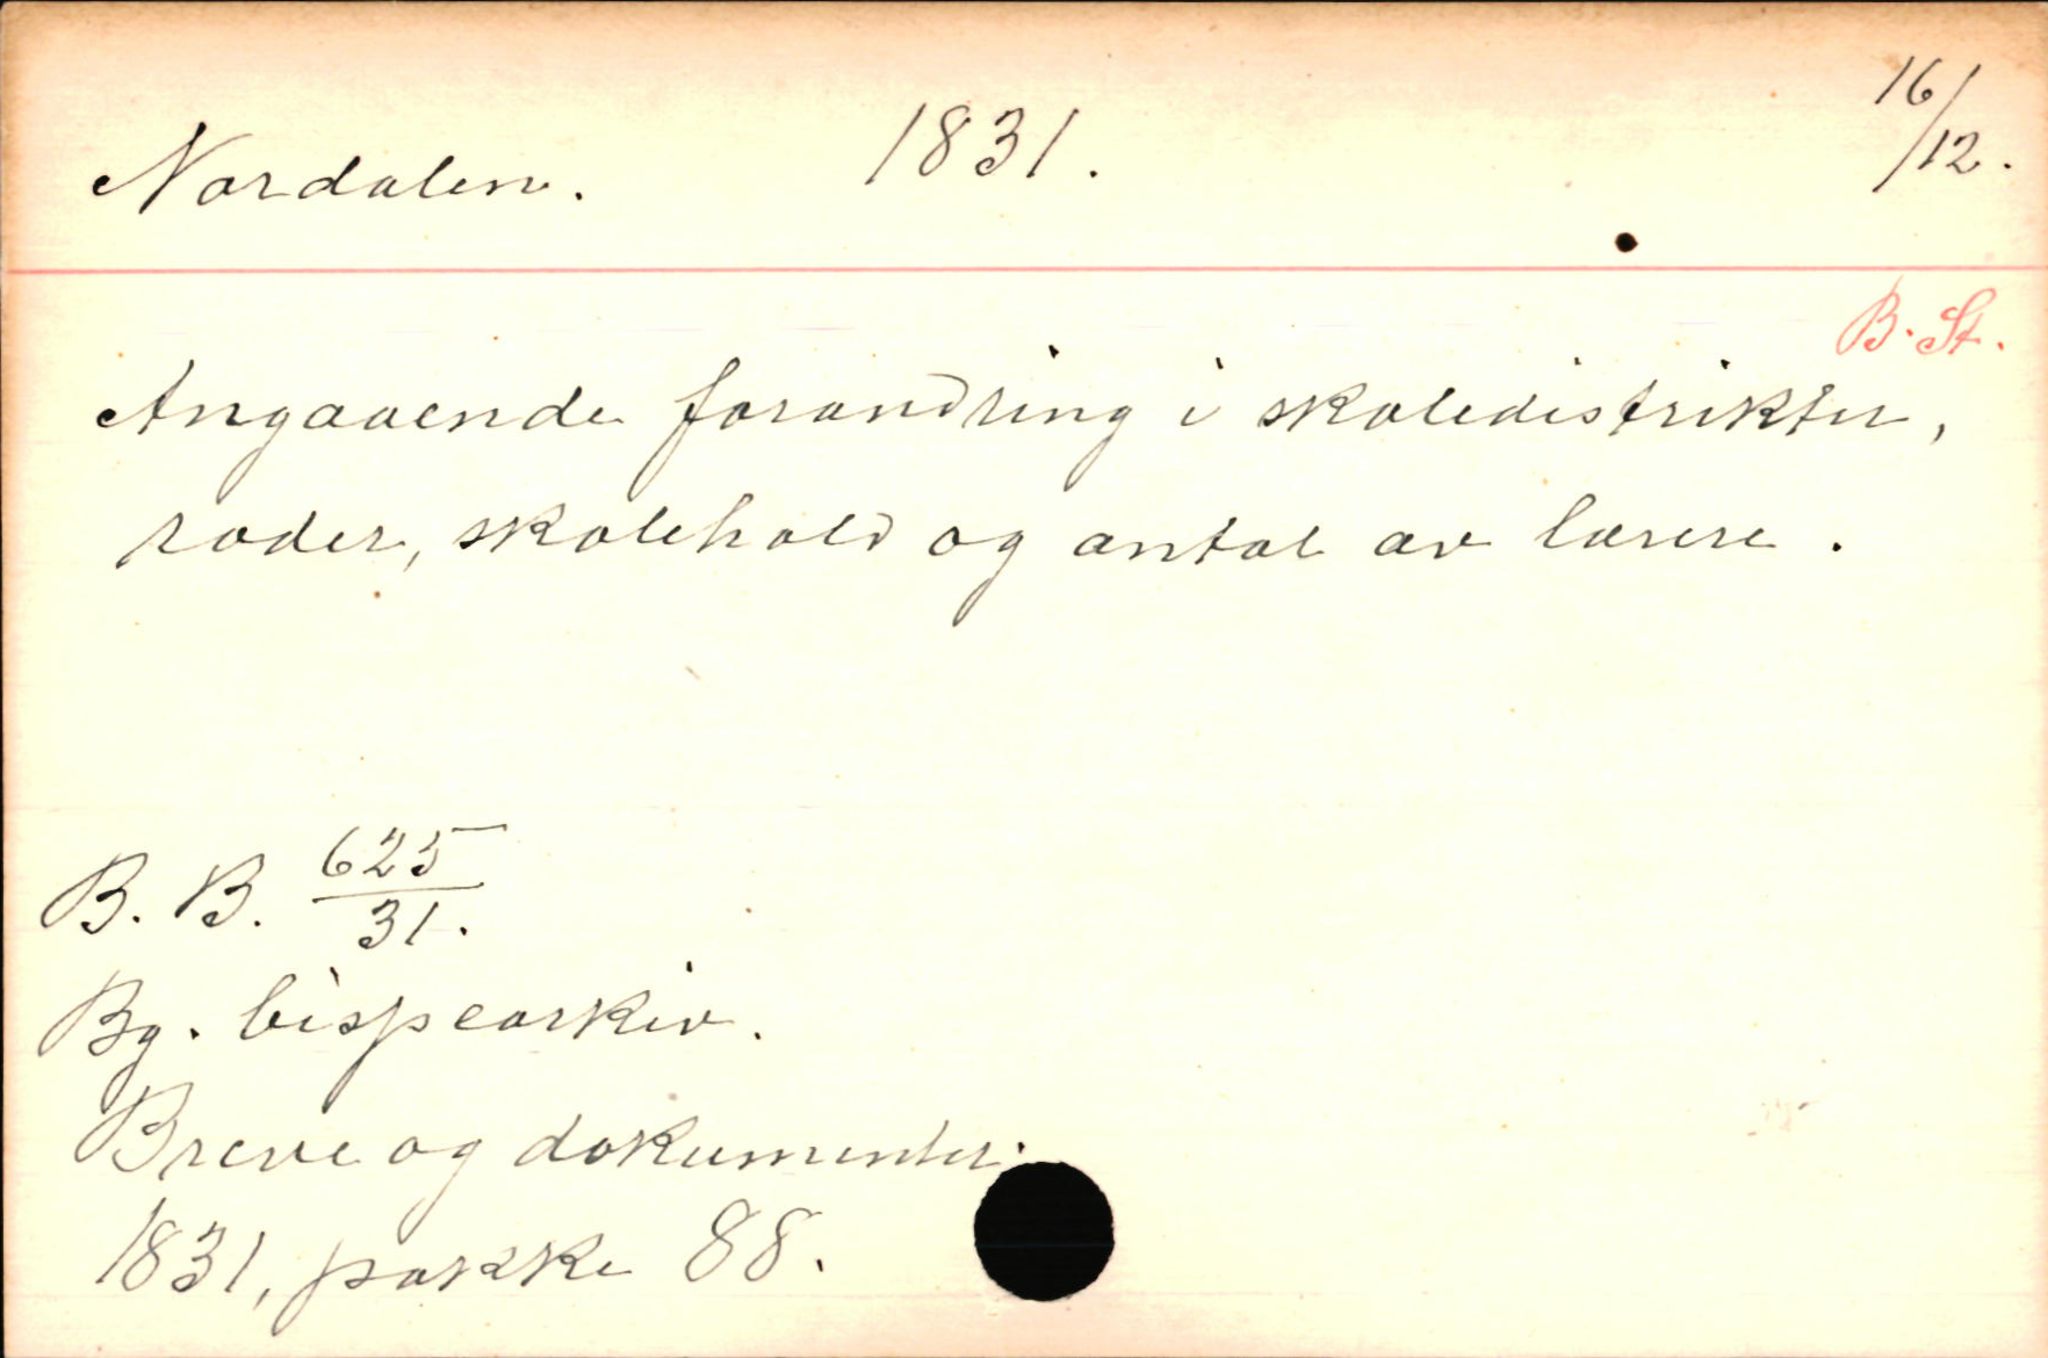 Nordalen. 1831. 16/12.
B. St.
Angaaende forandring i skoledistrikter,
roder, skolehold og antal av lærere.
B. B. 625/31.
Bg. bispearkiv.
Breve og dokumenter.
1831, pakke 88.